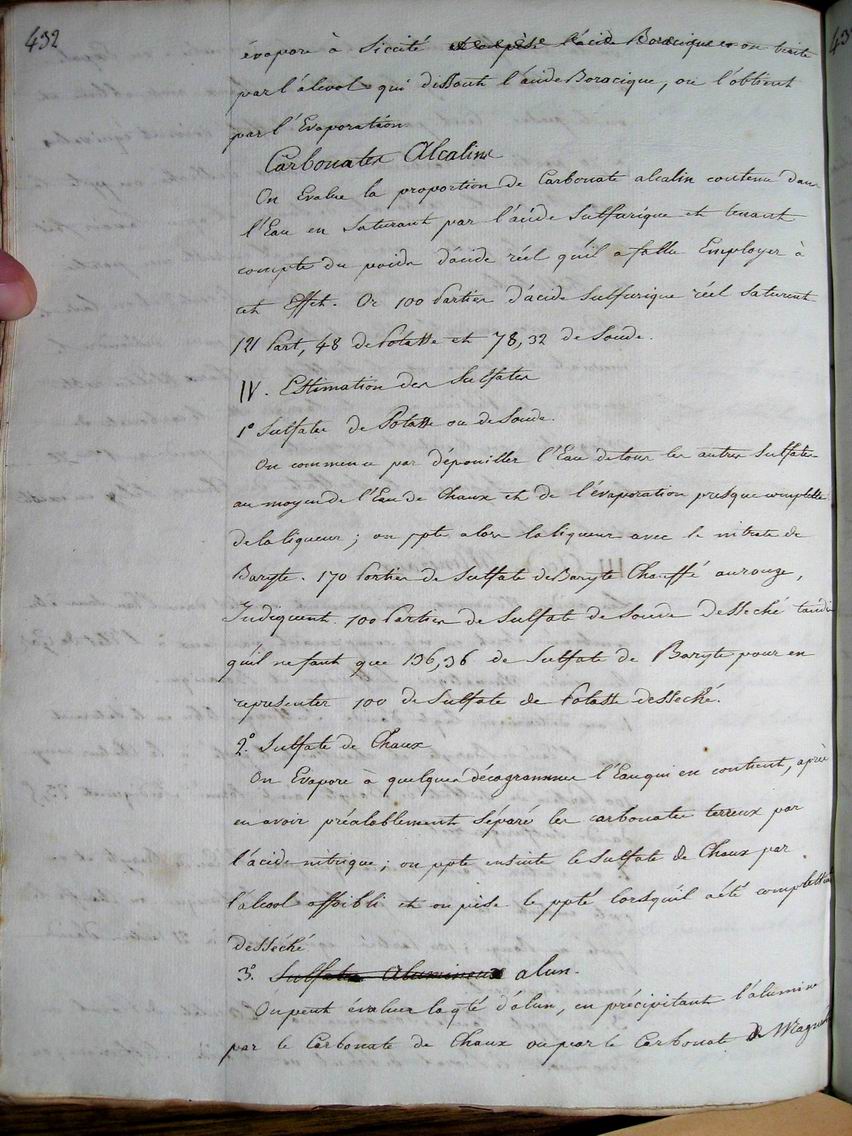 432
évapore à Siccité et on pèse l'acide Boracique et on traite
par l'alcool qui dissout l'acide Boracique, on l'obtient
par l'Evaporation
Carbonates Alcalins
On Evalue la proportion de Carbonate alcalin contenu dans
l'Eau en Saturant par l'acide Sulfurique et tenant
compte du poids d'acide réel qu'il a fallu Employer à
cet Effet. Or 100 Parties d'acide Sulfurique réel Saturent
121 Part, 48 de Potasse et 78,32 de Soude.
IV. Estimation des Sulfates
1° Sulfates de Potasse ou de Soude.
On commence par dépouiller l'Eau de tous les autres Sulfates
au moyen de l'Eau de Chaux et de l'évaporation presque complette
de la liqueur; on ppte alors la liqueur avec le nitrate de
Baryte. 170 Parties de Sulfate de Baryte Chauffé au rouge,
Indiquent 100 Parties de Sulfate de Soude desseché tandis
qu'il ne faut que 136,36 de Sulfate de Baryte pour en
representer 100 de Sulfate de Potasse desséché.
2° Sulfate de Chaux
On Evapore à quelques décagrammes l'Eau qui en contient, après
en avoir préalablement séparé les carbonates terreux par
l'acide nitrique; on ppte ensuite le Sulfate de Chaux par
l'alcool affoibli et on pèse le ppté lorsqu'il a été complettement
desséché
3° Sulfate Alumineux alun.
On peut évaluer la qté d'alun, en précipitant l'alumine
par le Carbonate de Chaux ou par le Carbonate de Magnésie